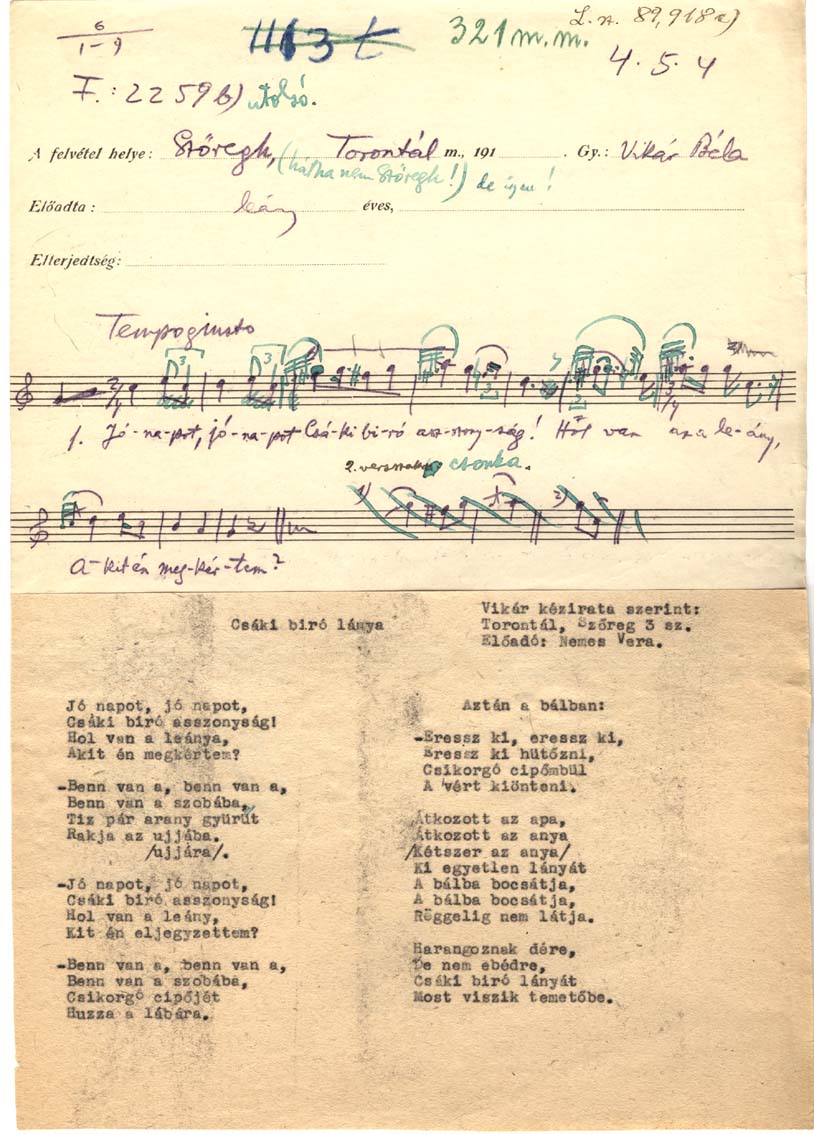 6
1-9
1163 t
321 m.m.
L. sz. 89,918a)
4. 5. 4
F.: 2259b) utolsó.
A felvétel helye: Szőregh, Torontál m., 191 . Gy.: Vikár Béla
(hátha nem Szőregh!) de igen!
Előadta: leány éves,
Elterjedtség:
Tempo giusto
1. Jó-na-pot, jó-na-pot Csá-ki bi-ró asz-szony-ság! Hol van az a le-ány,
2. versszak csonka.
1) 2)
A-kit én meg-kér-tem?
Csáki biró lánya
Vikár kézirata szerint:
Torontál, Szőreg 3 sz.
Előadó: Nemes Vera.
Jó napot, jó napot,
Csáki biró asszonyság!
Hol van a leánya,
Akit én megkértem?
-Benn van a, benn van a,
Benn van a szobába,
Tiz pár arany gyürüt
Rakja az ujjába.
/ujjára/.
-Jó napot, jó napot,
Csáki biró asszonyság!
Hol van a leány,
Kit én eljegyzettem?
-Benn van a, benn van a,
Benn van a szobába,
Csikorgó cipőjét
Huzza a lábára.
Aztán a bálban:
-Eressz ki, eressz ki,
Eressz ki hütőzni,
Csikorgó cipőmbül
A vért kiönteni.
Átkozott az apa,
Átkozott az anya
/Kétszer az anya/
Ki egyetlen lányát
A bálba bocsátja,
A bálba bocsátja,
Röggelig nem látja.
Harangoznak dére,
De nem ebédre,
Csáki biró lányát
Most viszik temetőbe.